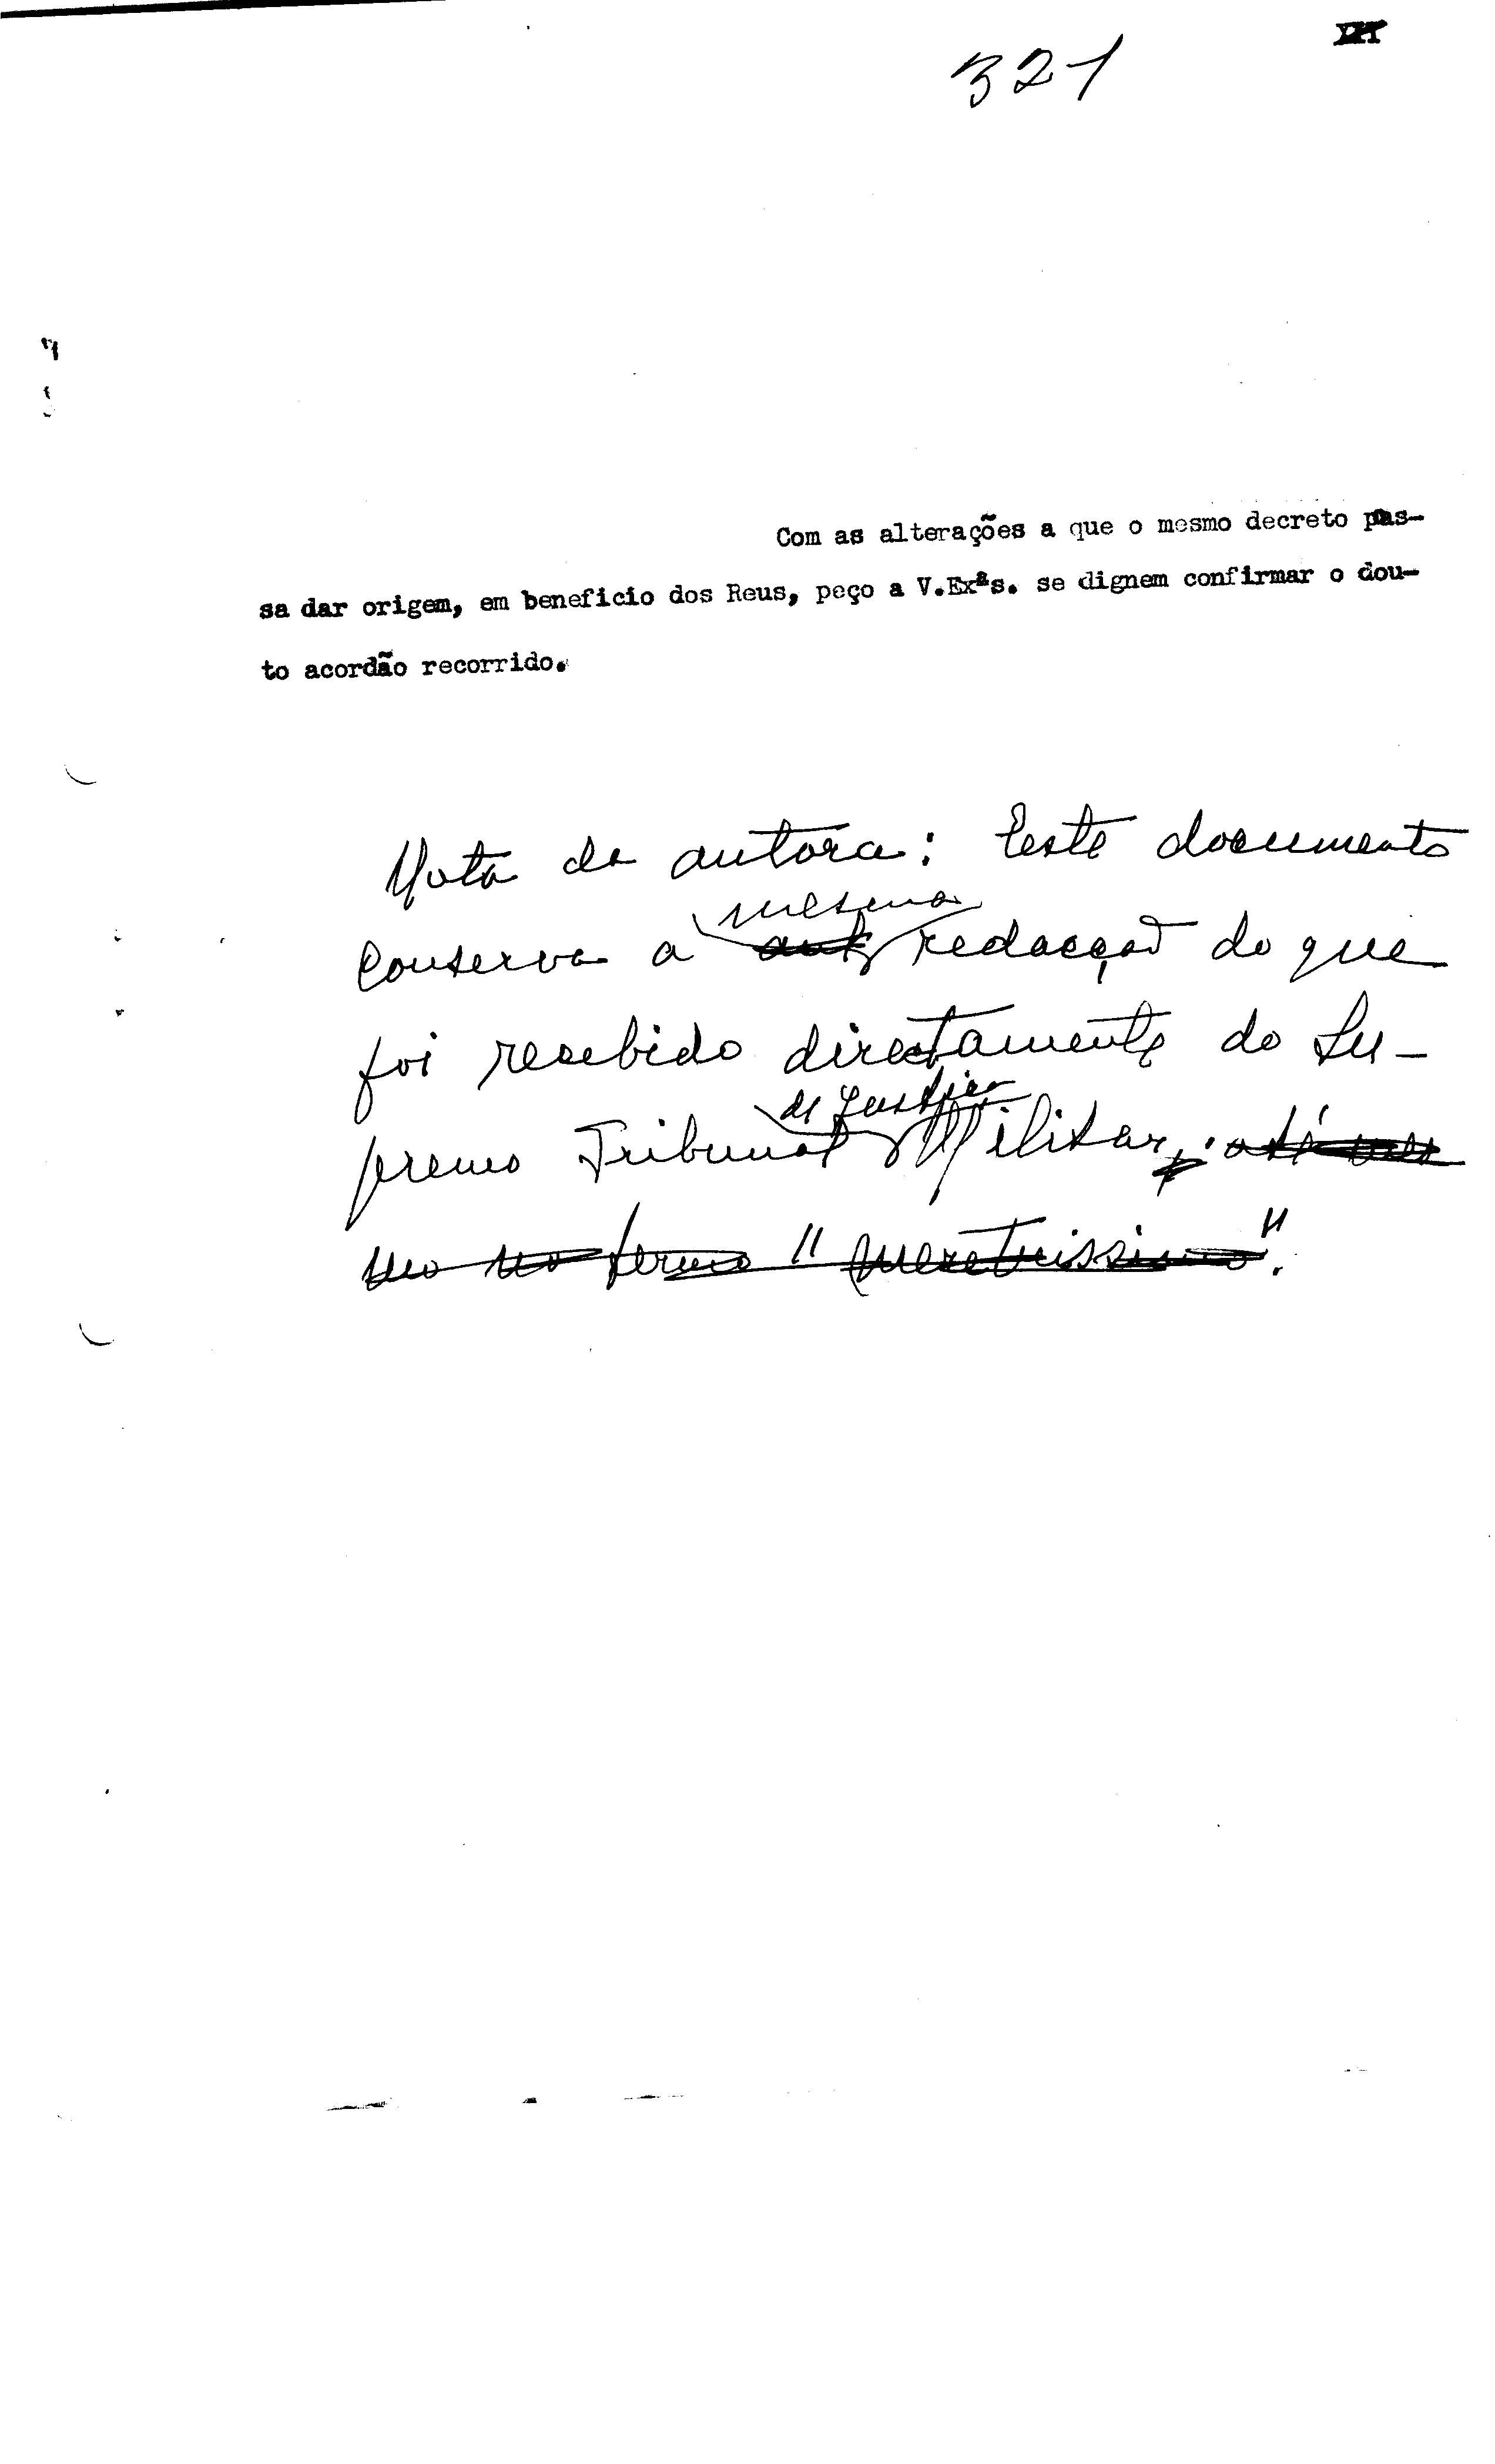 321
Com as alterações a que o mesmo decreto pas-
sa dar origem, em beneficio dos Reus, peço a V.Exªs. se dignem confirmar o dou-
to acordão recorrido.
Nota da autora: Este documento
mesma
conserva a redacção do que
foi recebido directamente do Su-
de Justiça
premo Tribunal Militar, até
no termo "meretrissimo".